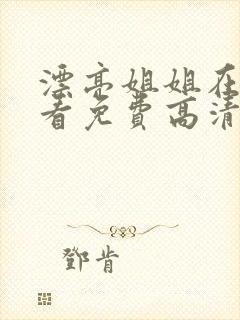 漂亮姐姐在
看免费高清
鄧肯